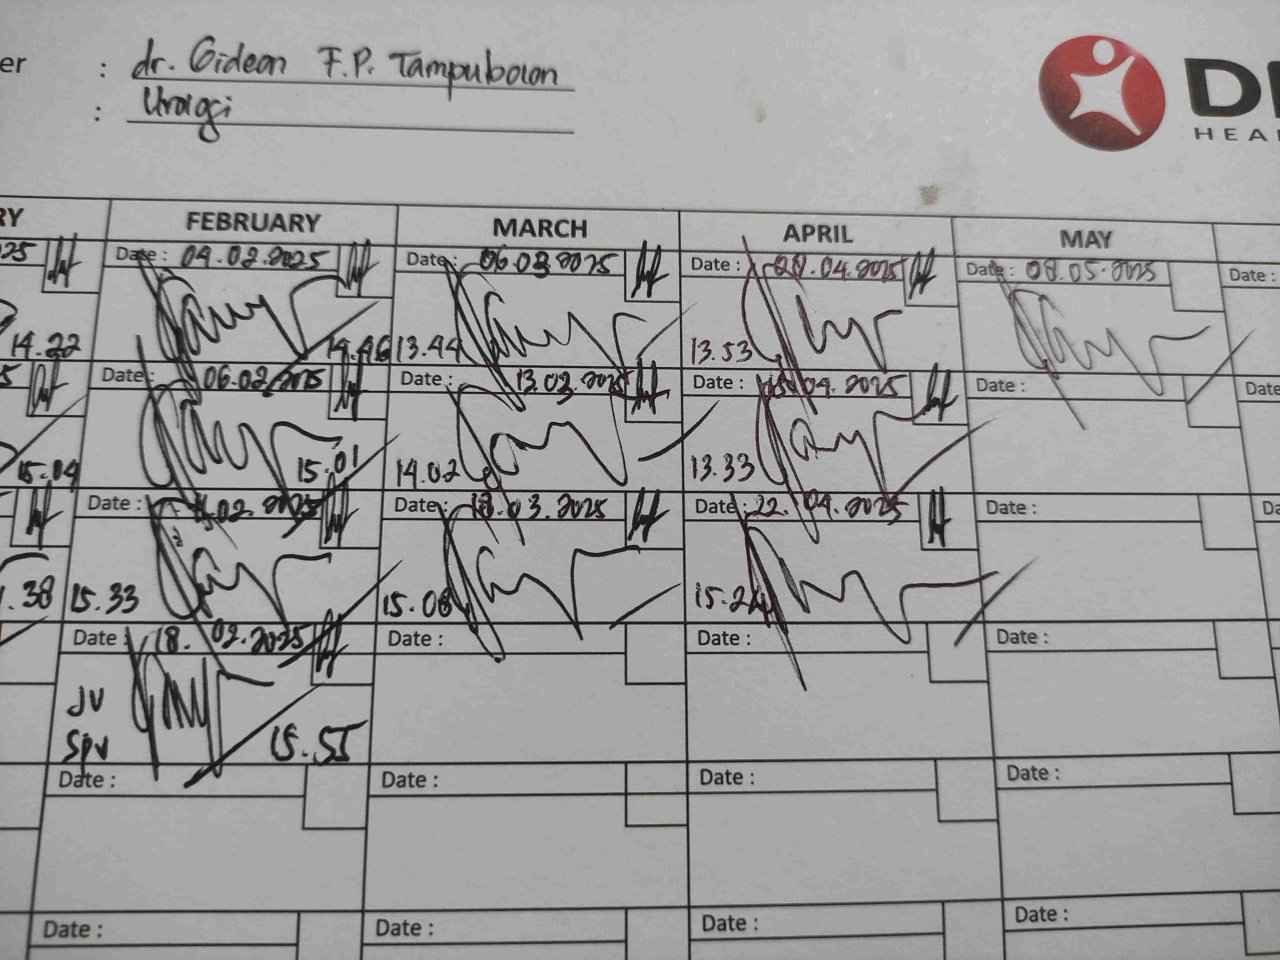 er : dr. Gideon F.P. Tampubolon
: Urologi
HEA
RY FEBRUARY MARCH APRIL MAY
25 Date : 04.02.2025 Date : 06.03.2025 Date : .04.2025 Date : 08.05.2025 Date :
14.22 14.46 13.44 13.53
Date : 06.02.2025 Date : 13.03.2025 Date : .04.2025 Date : Date
15.04 15.01 14.02 13.33
Date : .02.2025 Date : 18.03.2025 Date : 22.04.2025 Date :
.38 15.33 15.08 15.24
Date : 18.02.2025 Date : Date : Date :
JV
Spv 15.55
Date : Date : Date : Date :
Date : Date : Date : Date :